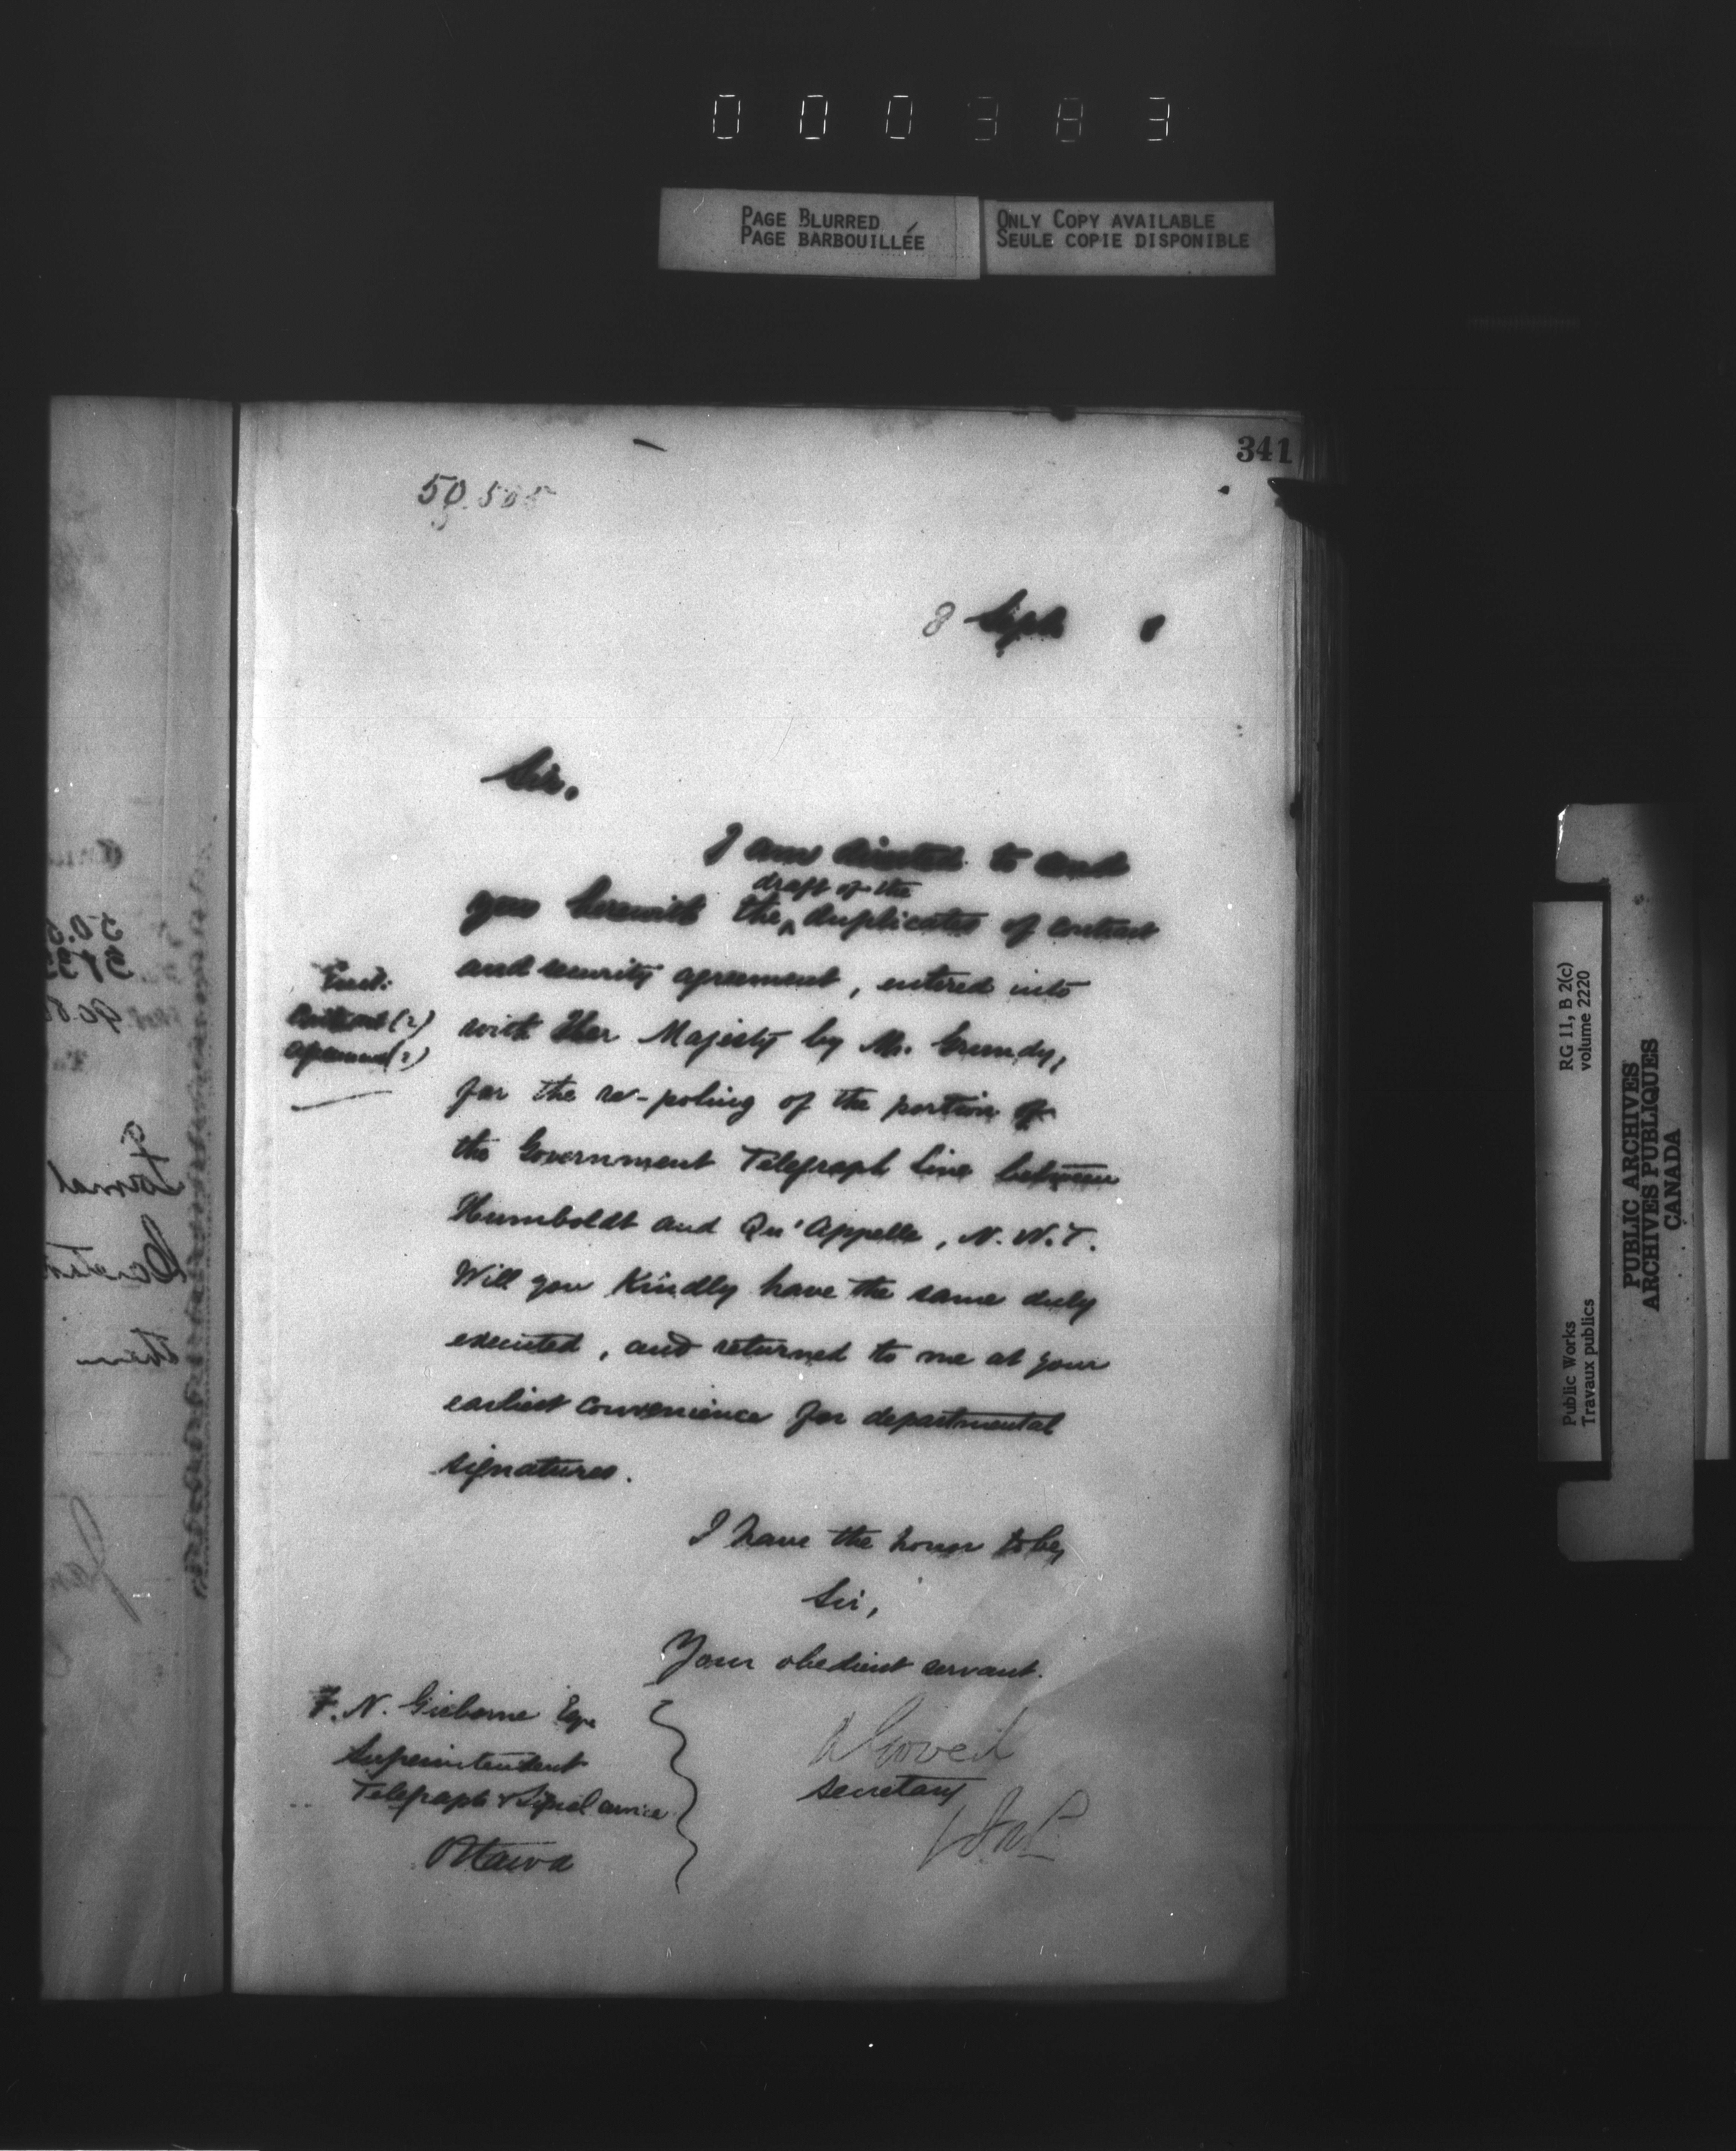 000383
PAGE BLURRED
PAGE BARBOUILLÉE
ONLY COPY AVAILABLE
SEULE COPIE DISPONIBLE
341
8 Sept 8
Sir.
I am directed to send
draft of the
you herewith the duplicates of contract
and security agreement, entered into
with Her Majesty by Mr. Grundy,
for the re-poling of the portion of
the Government Telegraph Line between
Humboldt and Qu'Appelle, N.W.T.
Will you Kindly have the same duly
executed, and returned to me at your
earliest convenience for departmental
signatures.
Encl:
Contract (2)
Agreement (2)
I have the honor to be,
Sir,
Your obedient servant.
F. N. Gisborne Esq.
Superintendent
Telegraph & Signal service
Ottawa
A Gobeil
Secretary
RG 11, B 2(c)
volume 2220
Public Works
Travaux publics
PUBLIC ARCHIVES
ARCHIVES PUBLIQUES
CANADA